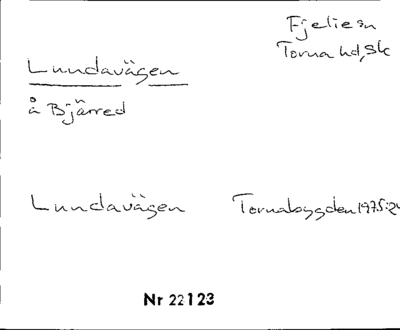 Fjelie sn
Torna hd, Sk
Lundavägen
å Bjärred
Lundavägen Tornabygden 1975:24
Nr 22123